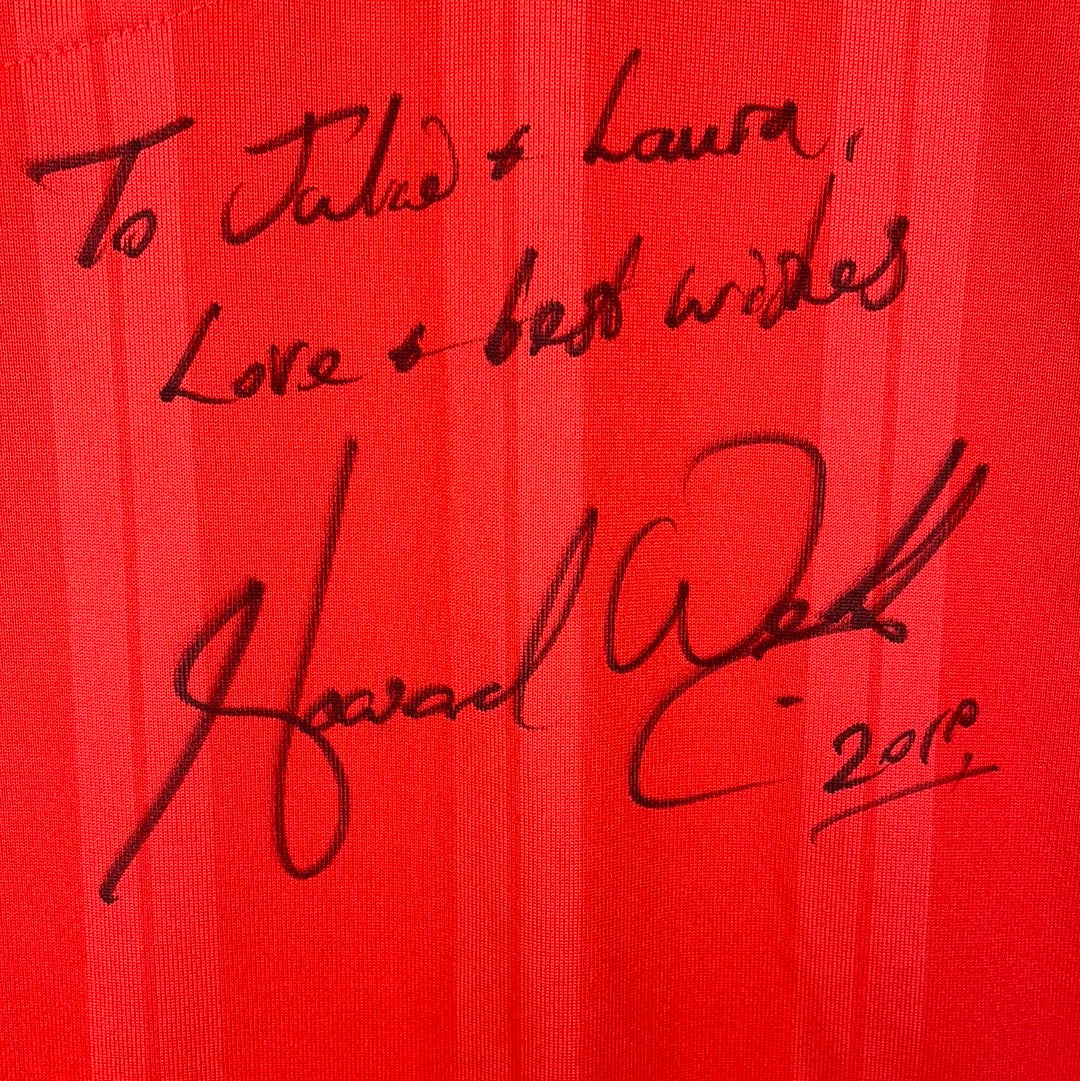 To Jake & Laura,
Love & best wishes
Howard Webb